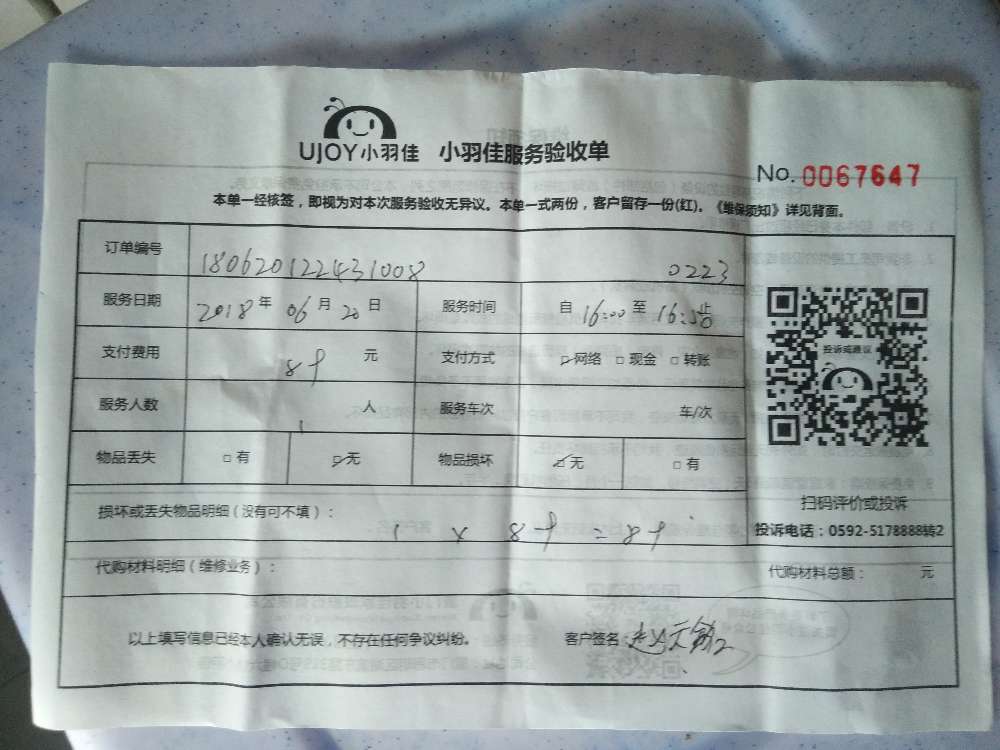 UJOY小羽佳 小羽佳服务验收单
No. 0067647
本单一经核签，即视为对本次服务验收无异议。本单一式两份，客户留存一份(红)。《维保须知》详见背面。
订单编号 180620122431008 0223
服务日期 2018年 06月 20日 服务时间 自 16:00 至 16:58
支付费用 元 支付方式 ☑网络 □现金 □转账
投诉或建议
服务人数 1 人 服务车次 车/次
物品丢失 □有 ☑无 物品损坏 ☑无 □有
扫码评价或投诉
损坏或丢失物品明细（没有可不填）：
投诉电话：0592-5178888转2
代购材料明细（维修业务）： 代购材料总额： 元
以上填写信息已经本人确认无误，不存在任何争议纠纷。 客户签名：